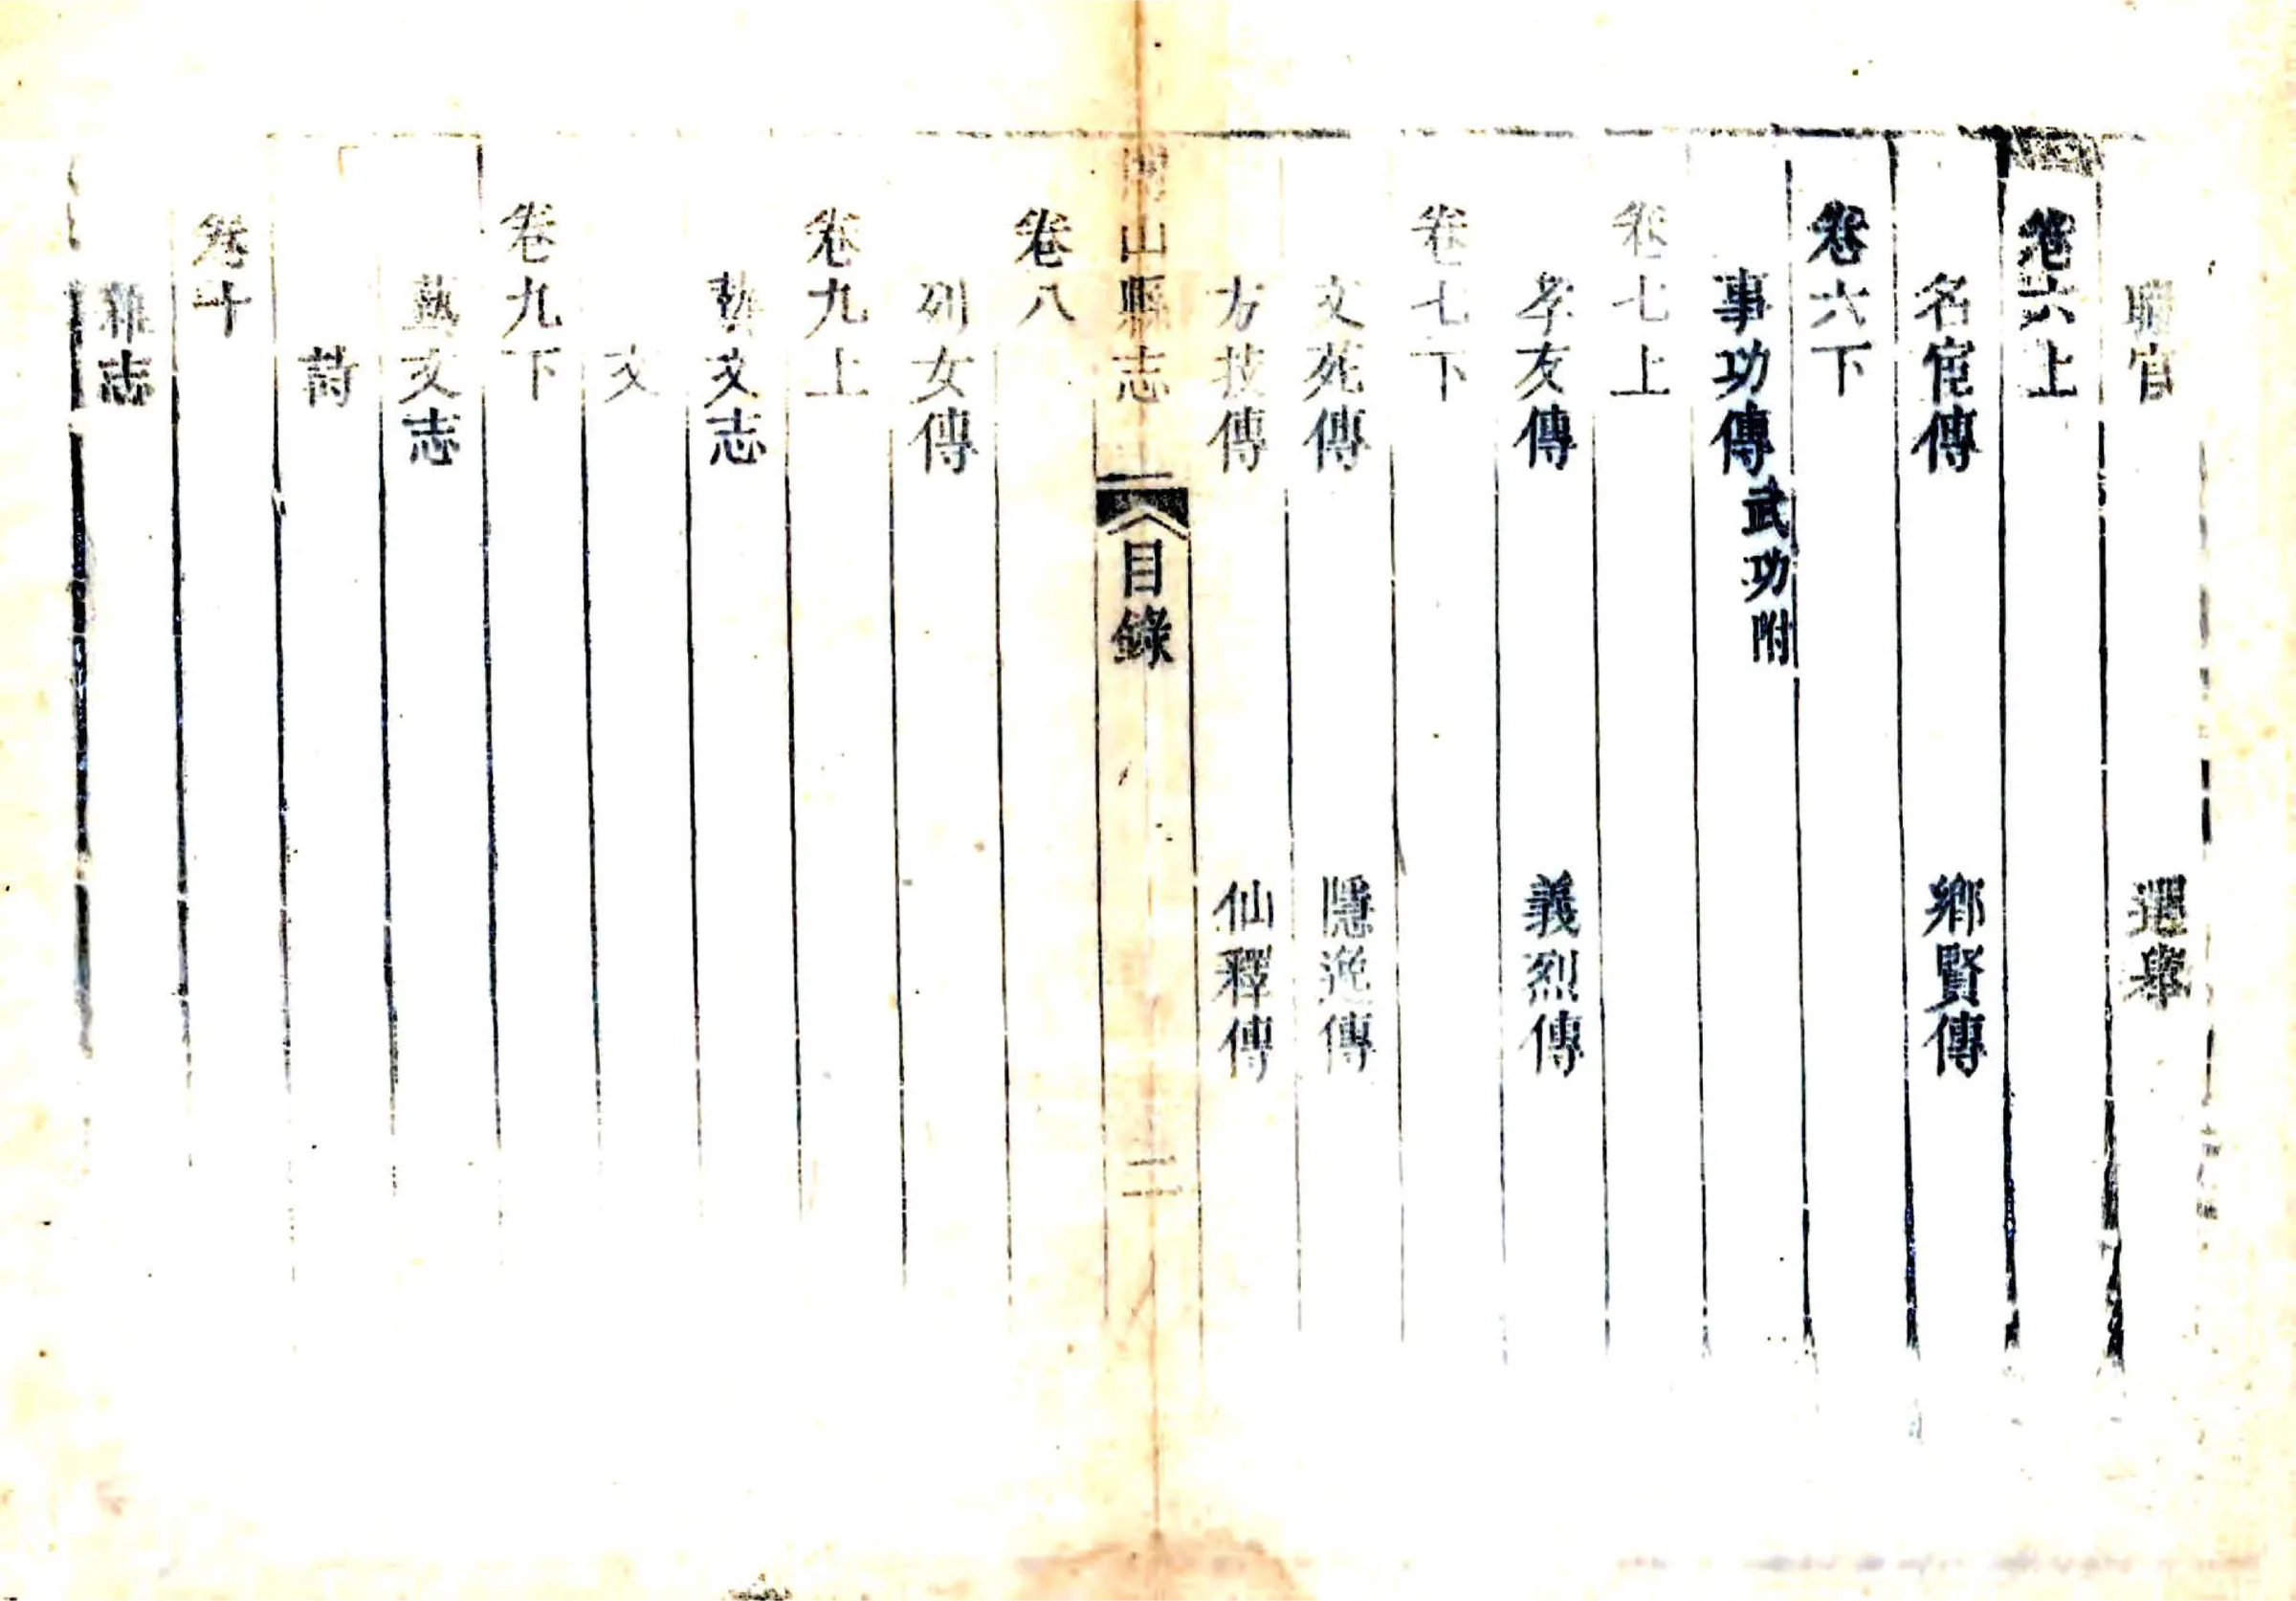 職官 選舉
卷六上
名宦傳 鄉賢傳
卷六下
事功傳武功附
卷七上
孝友傳 義烈傳
卷七下
文苑傳 隱逸傳
方技傳 仙釋傳
山縣志 目錄 二
卷八
列女傳
卷九上
藝文志
文
卷九下
藝文志
詩
卷十
雜志